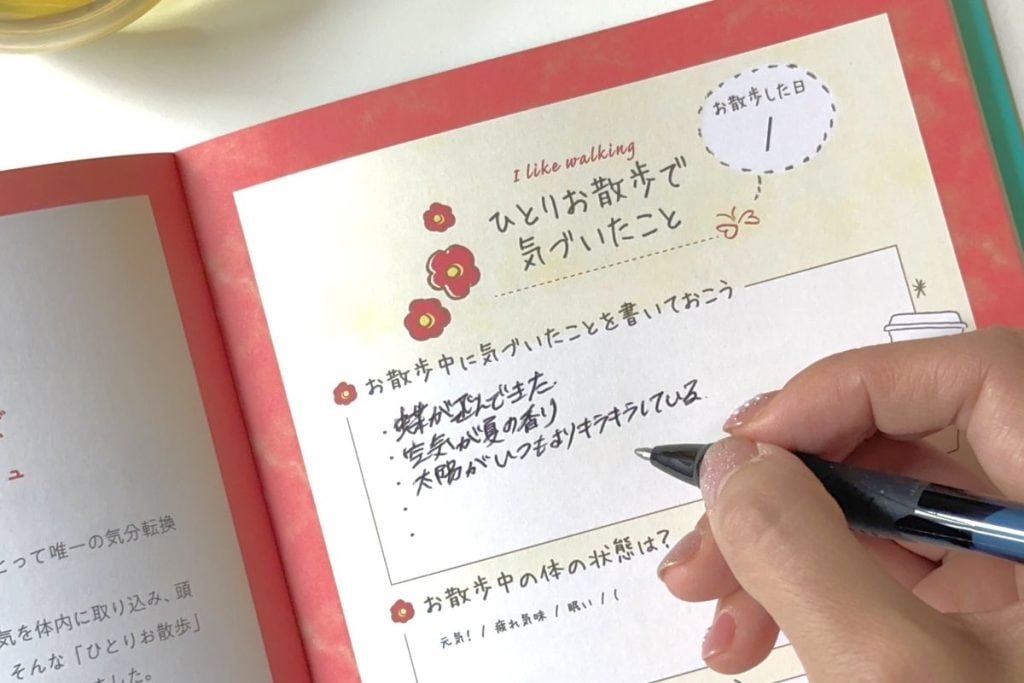 お散歩した日
/
I like walking
ひとりお散歩で
気づいたこと
お散歩中に気づいたことを書いておこう
・蝶が遊んできた
・空気が夏の香り
・太陽がいつもよりキラキラしている
・
・
お散歩中の体の状態は?
元気! / 疲れ気味 / 眠い / (
とって唯一の気分転換
気を体内に取り込み、頭
そんな「ひとりお散歩」
ました。